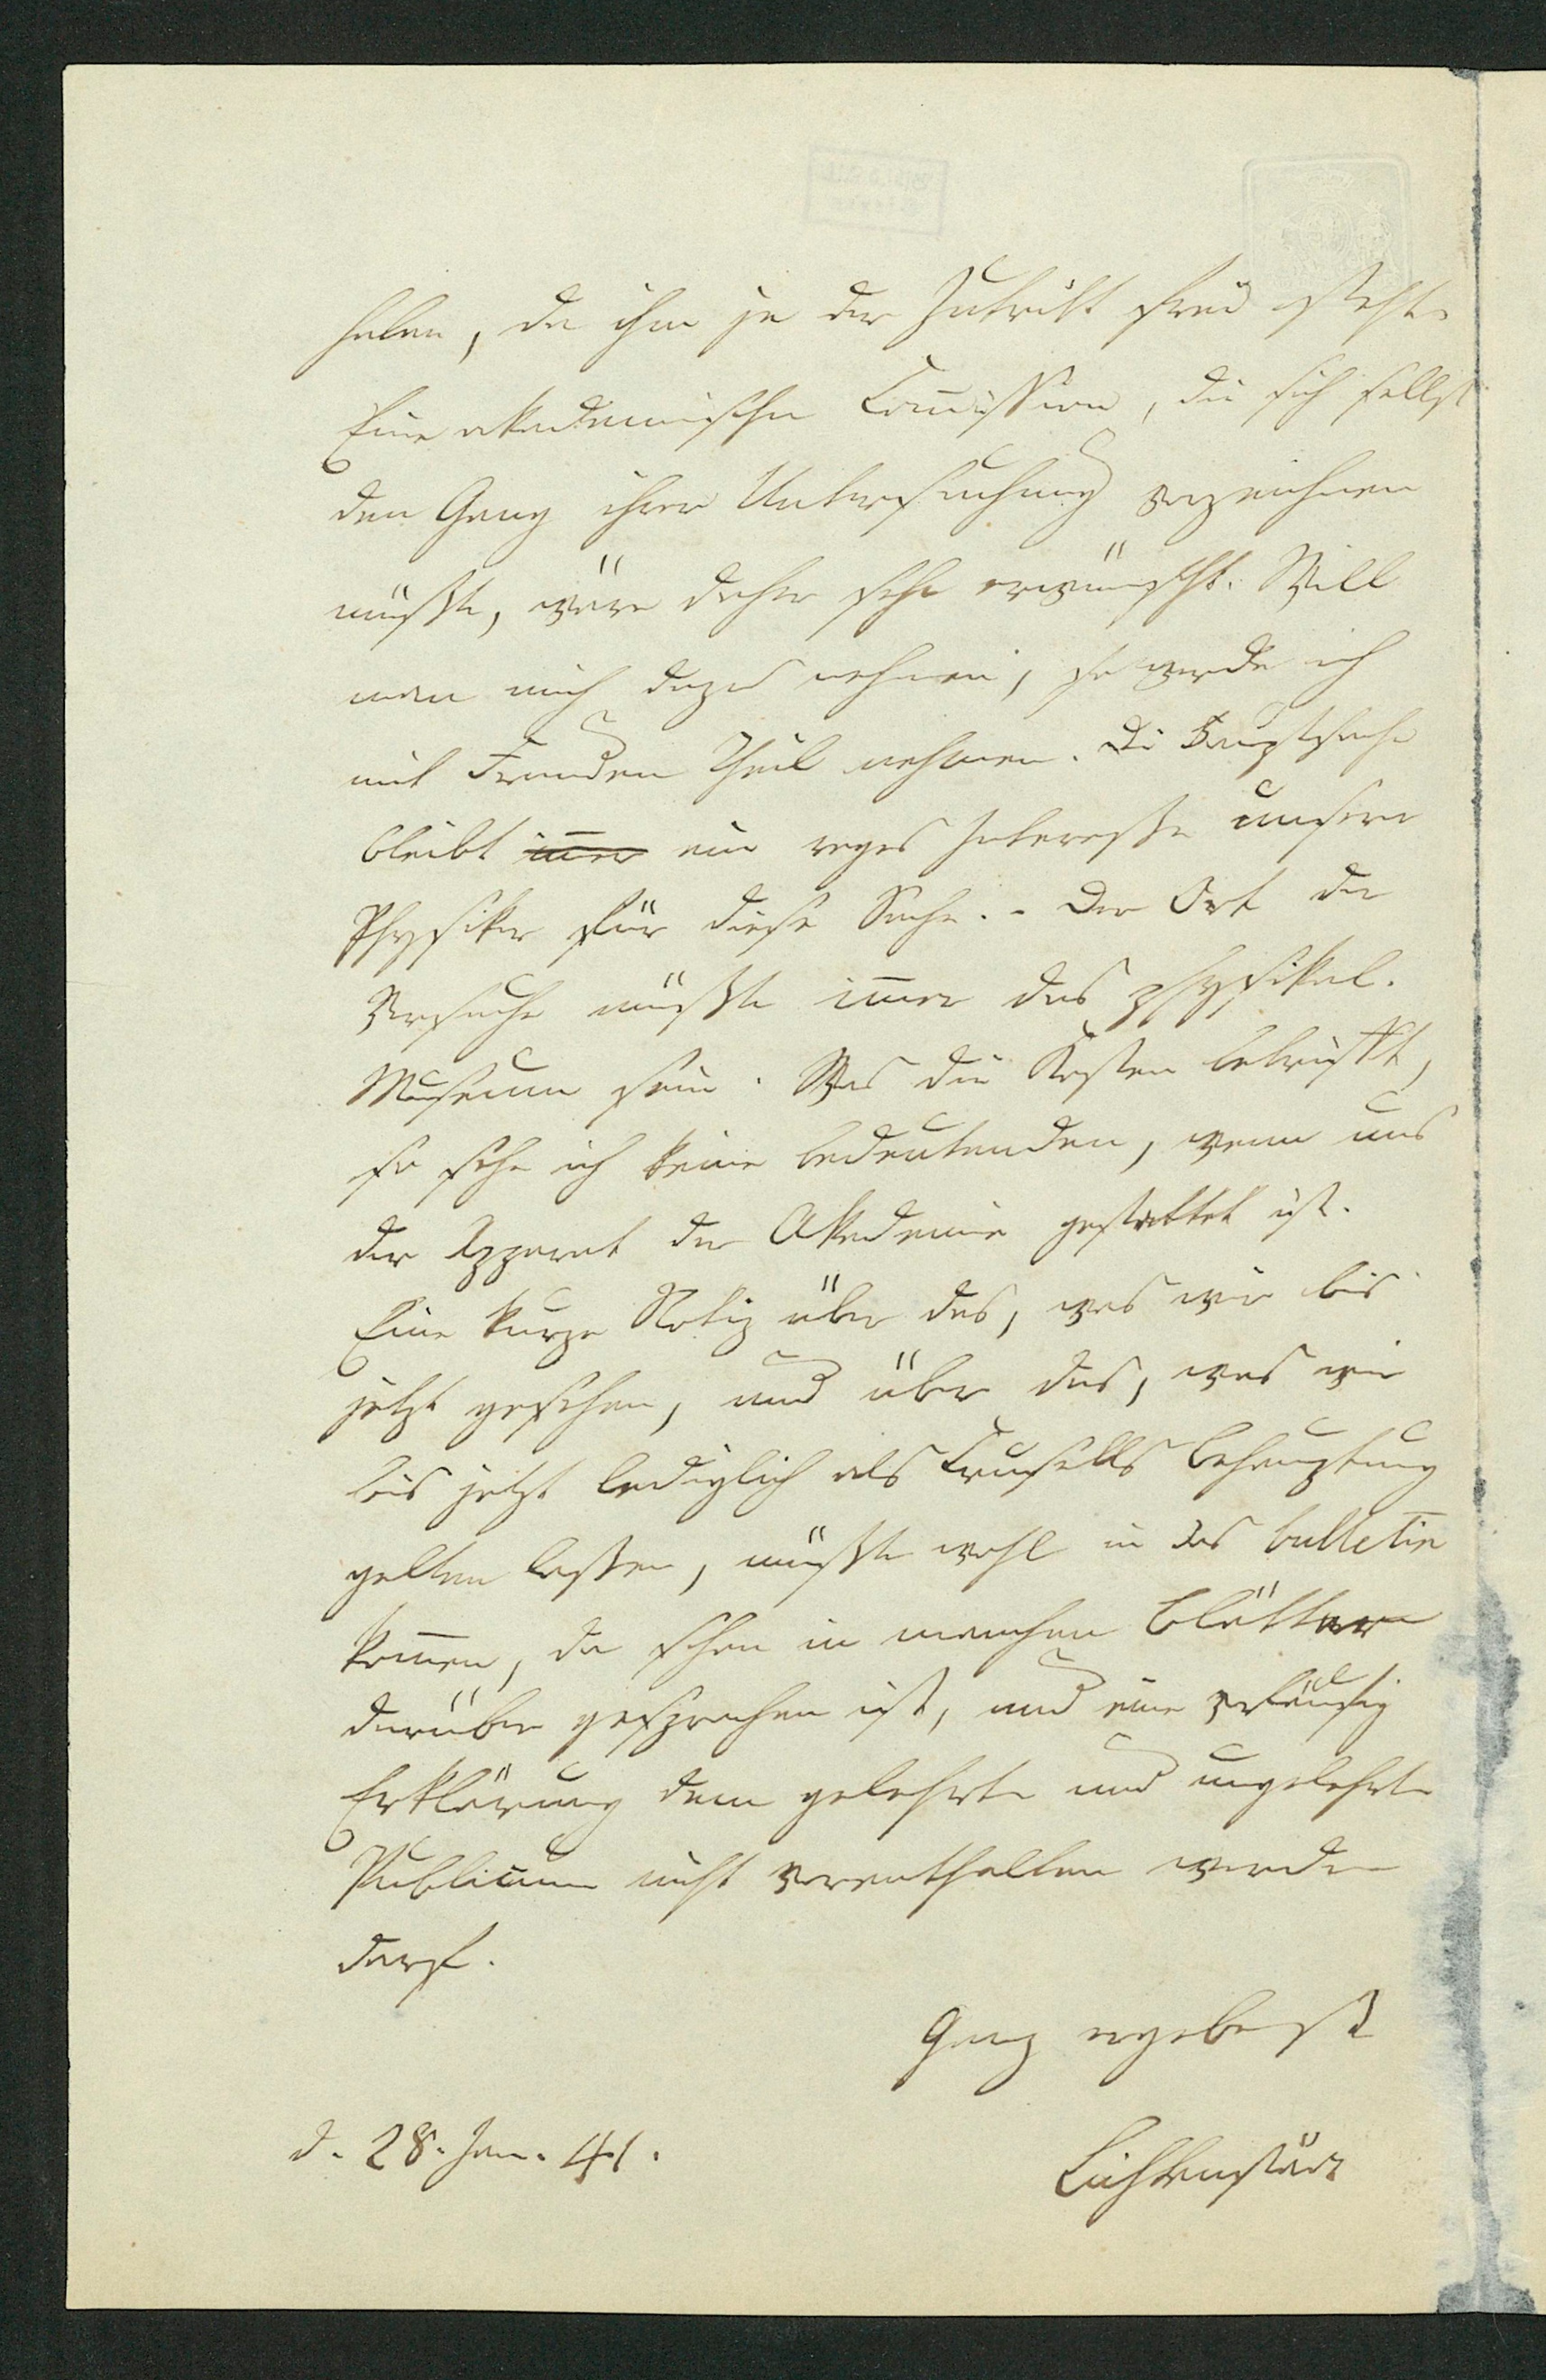 haben, da ihm ja der Zutritt frei steht.
Eine akademische Com̅ission, die sich selbst
den Gang ihrer Untersuchung vorzeichnen
müßte, wäre daher sehr erwünscht. Will
man mich dazu nehmen, so werde ich
mit Freuden Theil nehmen. Die Hauptsache
bleibt im̅er ein reges Interesse unserer
Physiker für diese Sache. - Der Ort der
Versuche müßte im̅er das physikal.
Museum sein. Was die Kosten betrifft,
so sehe ich keine bedeutenden, wenn uns
der Apparat der Akademie gestattet ist.
Eine kurze Notiz über das, was wir bis
jetzt gesehen, und über das, was wir
bis jetzt lediglich als Crusells Behauptung
gelten lassen, müßte wohl in das bulletin
kom̅en, da schon in manchen Blättern
darüber gesprochen ist, und eine vorläufig
Erklärung dem gelehrten und ungelehrten
Publicum nicht vorenthalten werden
darf.
Ganz ergebenst
d. 28. Jan. 41.
Lichtenstädt